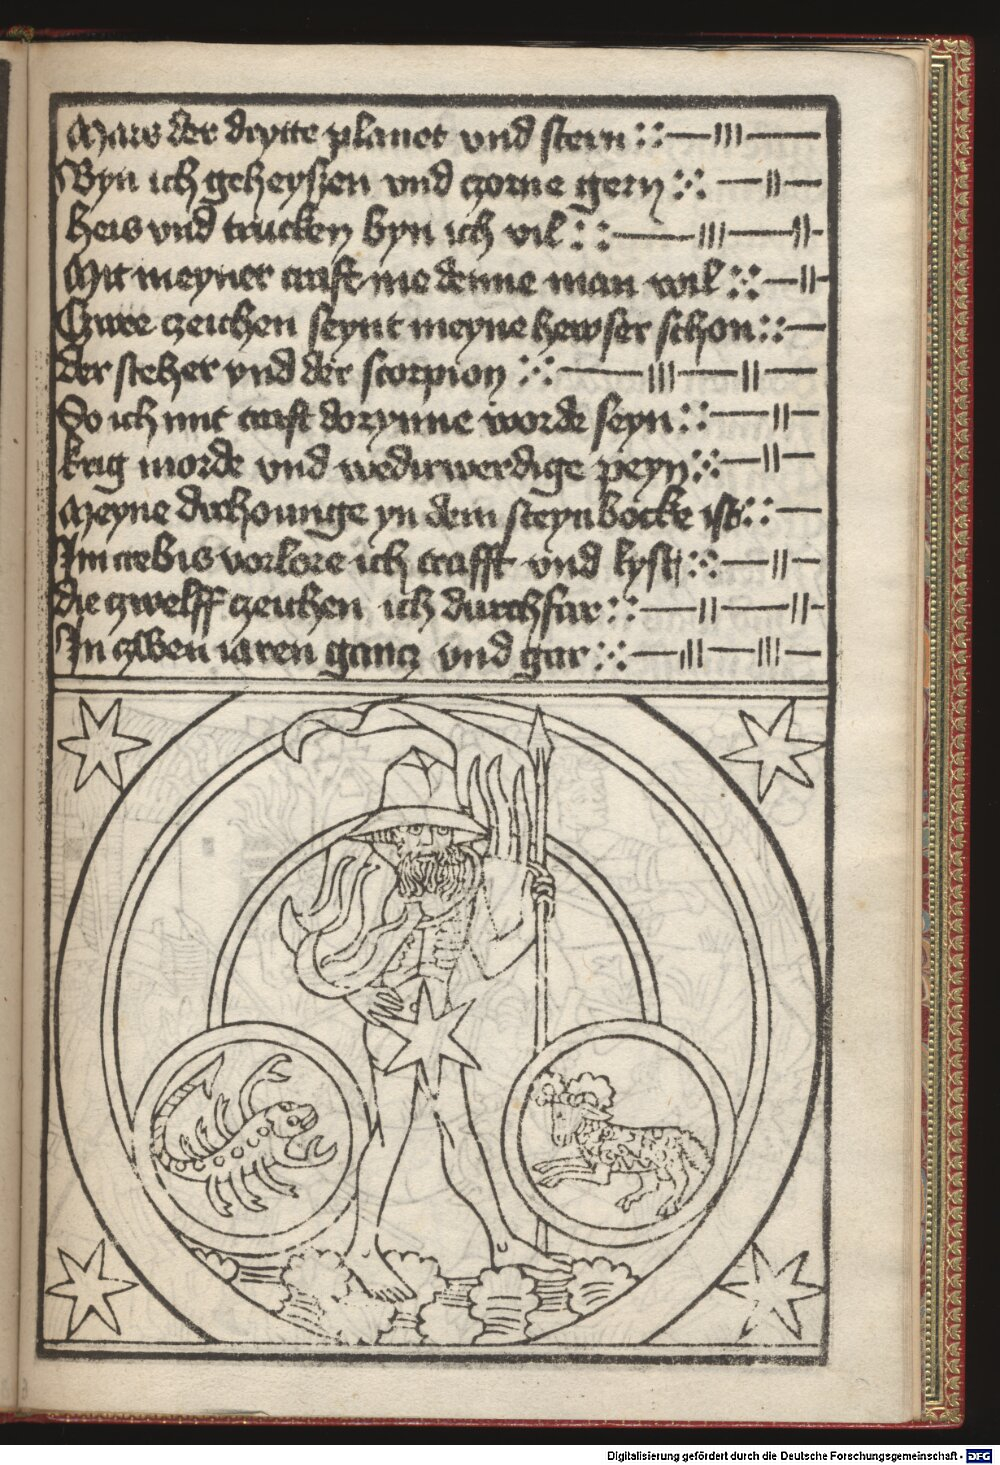 Mars der drytte planet vnd stern
Byn ich geheyszen vnd czorne gern
heis vnd trucken byn ich vil
Mit meyner craft me denne man wil
Czwee czeichen seynt meyne hewser schon
der steher vnd der scorpion
So ich mit craft dorynne worde seyn
krig morde vnd wedirwerdige peyn
Meyne dirhounge yn dem steynbocke ist
Im crebis vorlore ich crafft vnd lyst
die czwelff czeichen ich durchfar
In czwen iaren gancz vnd gar
Digitalisierung gefördert durch die Deutsche Forschungsgemeinschaft - DFG